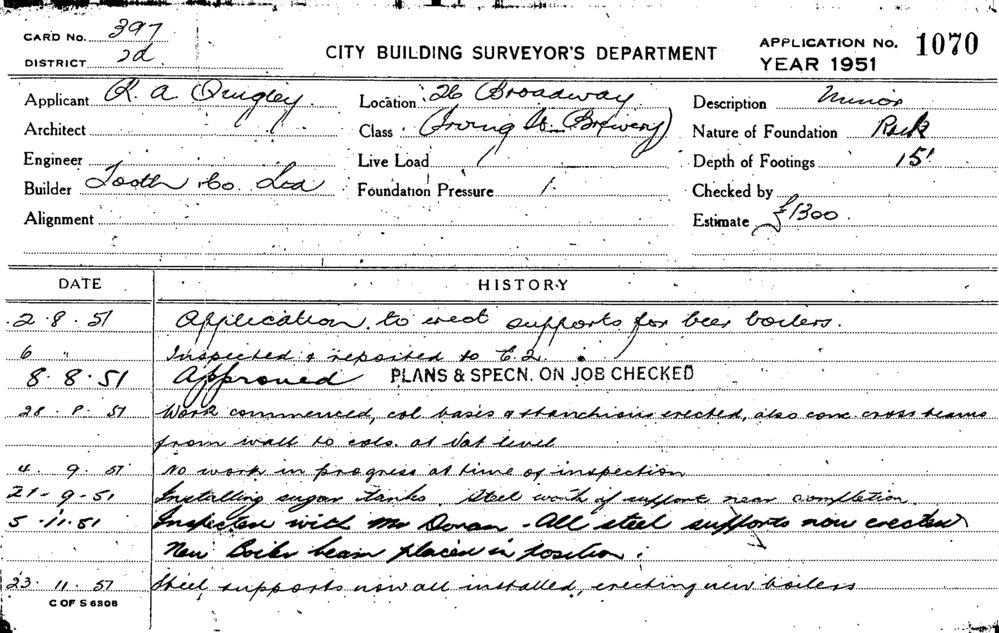 CARD NO. 397
DISTRICT 2d
CITY BUILDING SURVEYOR'S DEPARTMENT
APPLICATION NO. 1070
YEAR 1951
Applicant R. A. Quigley
Architect
Engineer
Builder Tooth & Co. Ltd
Alignment
Location 26 Broadway
Class (Irving St. Brewery)
Live Load /
Foundation Pressure /.
Description Minor
Nature of Foundation Rock
Depth of Footings 15'
Checked by
Estimate £1300.
DATE HISTORY
2.8.51 Application to erect supports for beer boilers.
6 " Inspected & reported to
8.8.51 Approved PLANS & SPECN. ON JOB CHECKED
28.8.51 Work commenced, col. basis & stanchions erected, also conc. cross beams
from wall to cols. at Vat level
4.9.51 No work in progress at time of inspection
21-9-51 Installing sugar tanks Steel work of support near completion.
5.11.51 Inspected with Mr Doran - All steel supports now erected
New Boiler beam placed in position.
23.11.51 Steel supports now all installed, erecting new boilers
C OF S 6308